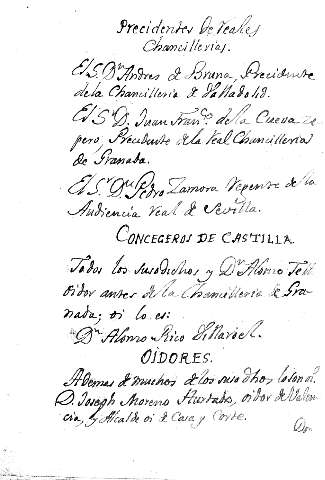 Precidentes De Reales
Chancillerias.
El S.r D.n Andres de Bruna, Precidente
de la Chancilleria de Valladolid.
El S.r D. Juan Fran.co de la Cueva Ze
pero, Precidente de la Real Chancilleria
de Granada.
El S.r D.n Pedro Zamora Regente de la
Audiencia Real de Sevilla.
CONCEGEROS DE CASTILLA.
Todos los susodichos y D.n Alonso Tell
oidor antes de la Chancilleria de Gra
nada; oi lo es:
D.n Alonso Rico Villaroel.
OIDORES.
Ademas de muchos de los susodhos lo son oi.
D. Joseph Moreno Hurtado, oidor de Valen
cia, y Alcalde oi de Casa y Corte.
Don